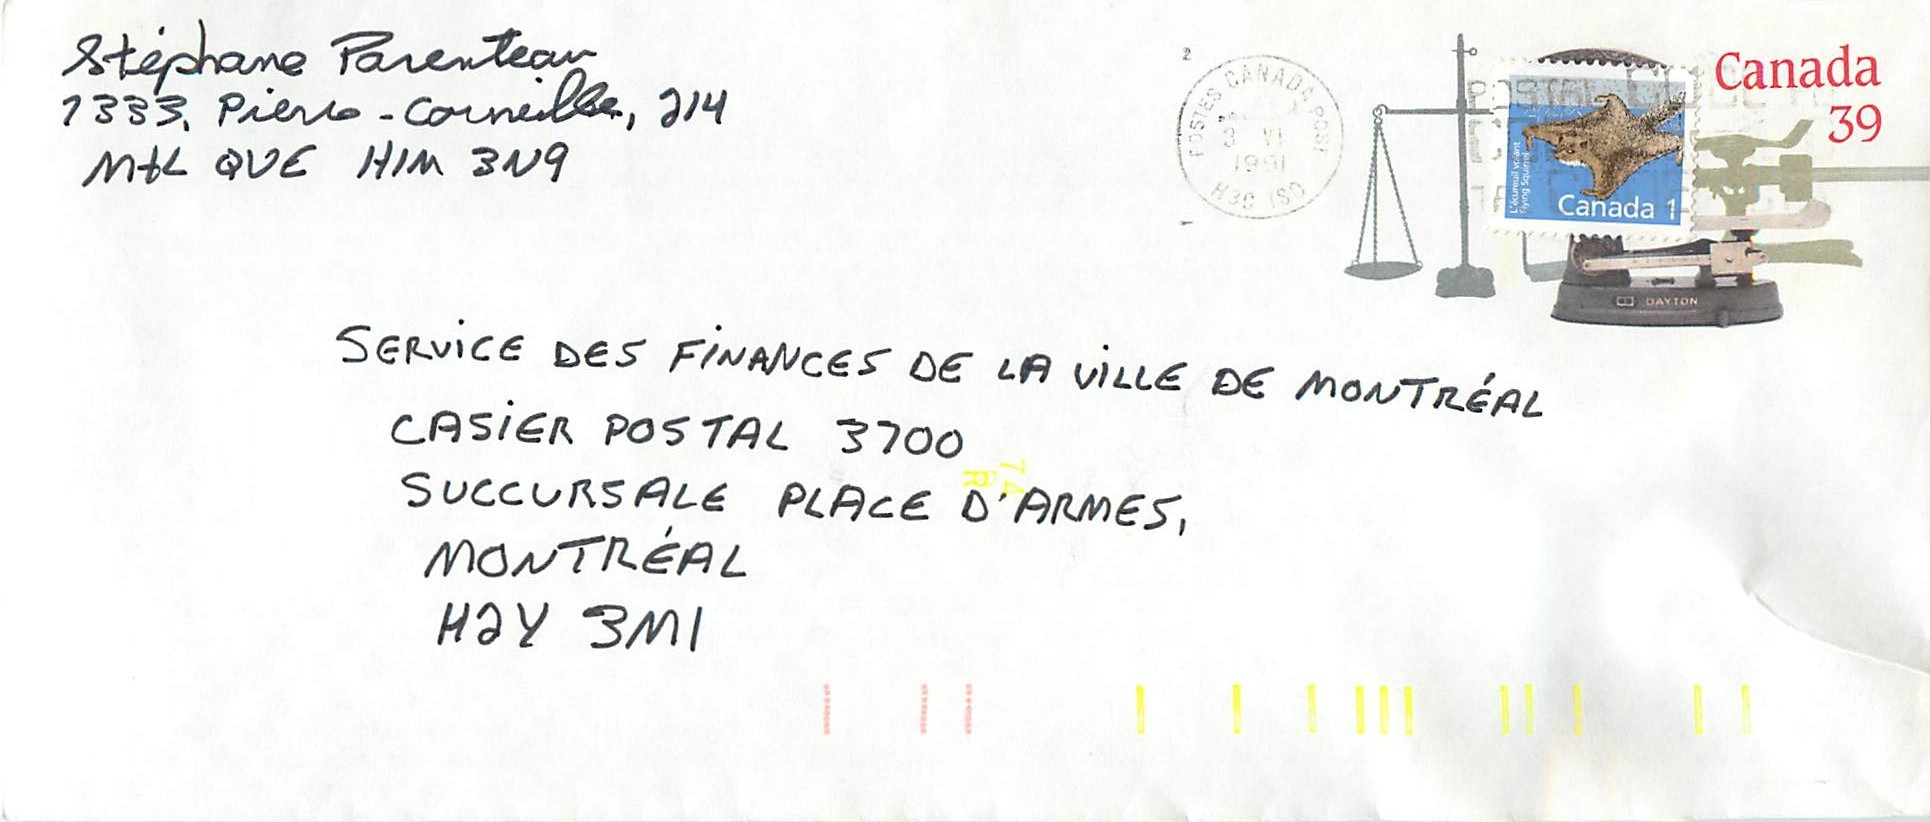 Stéphane Parenteau
7333, Pierre-Corneille, 214
Mtl QUE H1M 3N9
2
POSTES CANADA POST
VI
1991
H3C 1S0
1
Canada
39
L'écureuil volant
Flying Squirrel
Canada 1
DAYTON
SERVICE DES FINANCES DE LA VILLE DE MONTRÉAL
CASIER POSTAL 3700
SUCCURSALE PLACE D'ARMES,
MONTRÉAL
H2Y 3M1
74
R